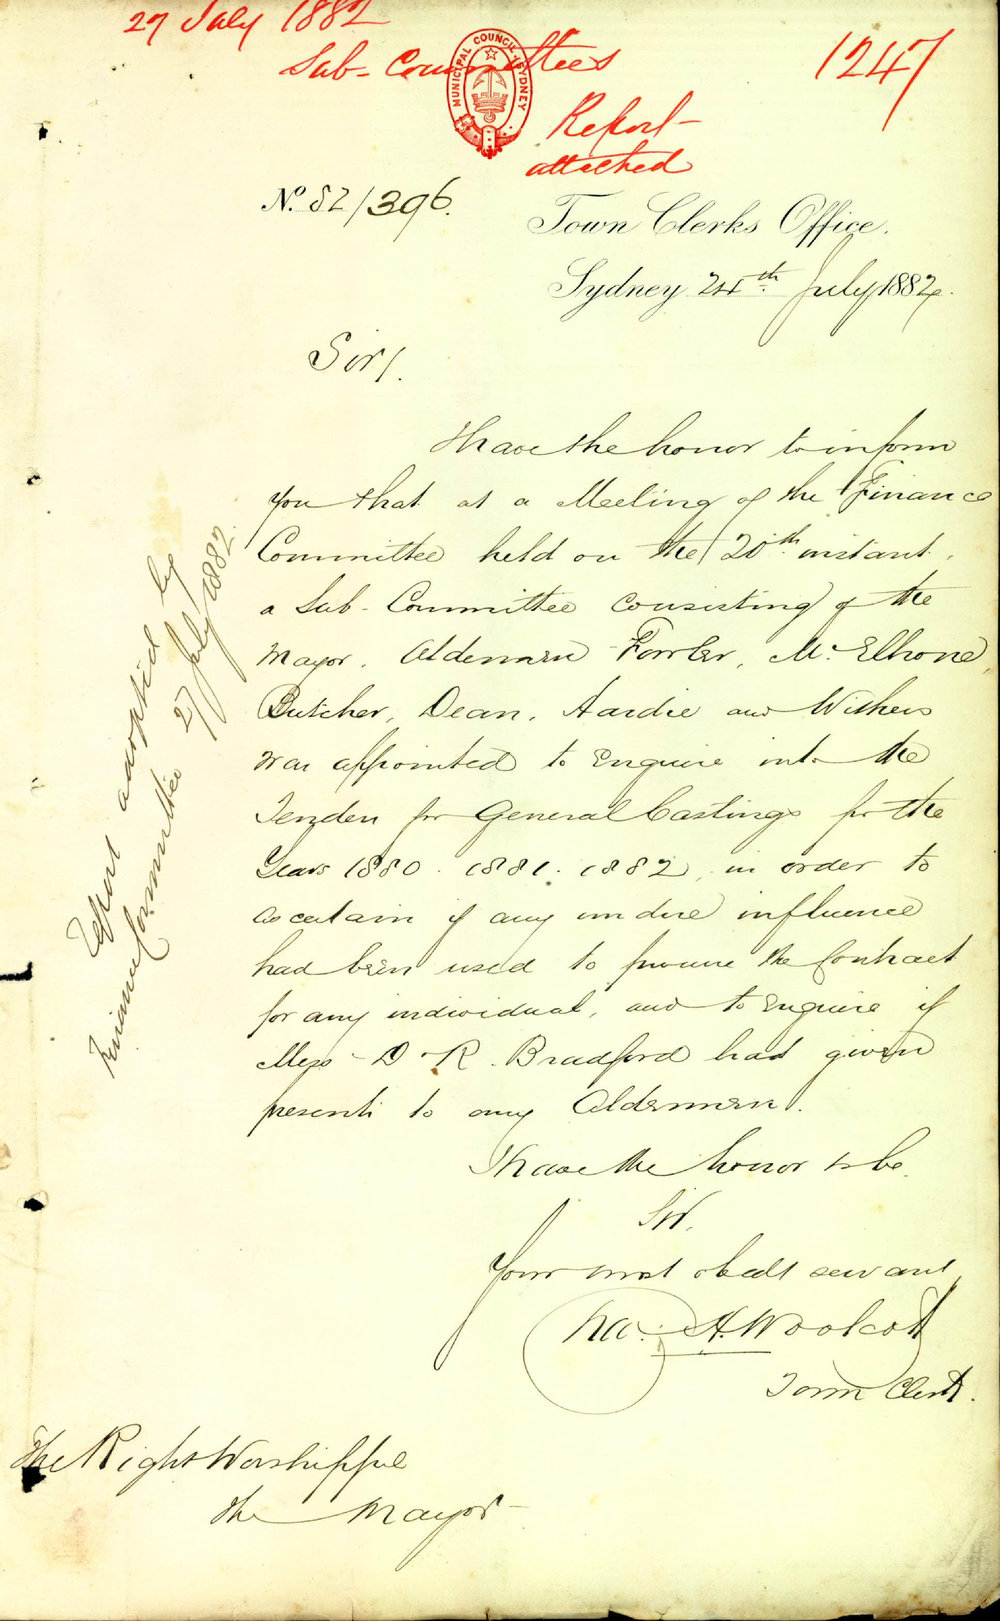 27 July 1882
Sub-Committees
1247
MUNICIPAL COUNCIL SYDNEY
Report
attached
No. 82/396.
Town Clerks Office.
Sydney 24th July 1882.
Sir/.
I have the honor to inform
you that at a Meeting of the Finance
Committee held on the 20th instant,
a Sub-Committee consisting of the
Mayor, Aldermen Fowler, Mc.Elhone,
Butcher, Dean, Hardie and Withers
was appointed to Enquire into the
Tenders for General Castings for the
Years 1880. 1881. 1882, in order to
ascertain if any undue influence
had been used to procure the Contract
for any individual, and to Enquire if
Mess D & R. Bradford had given
presents to any Aldermen.
I have the honor to be
Sir,
Your most obedt servant,
Chas. H. Woolcott
Town Clerk.
The Right Worshipful
the Mayor
Report adopted by
Finance Committee 27 July 1882.